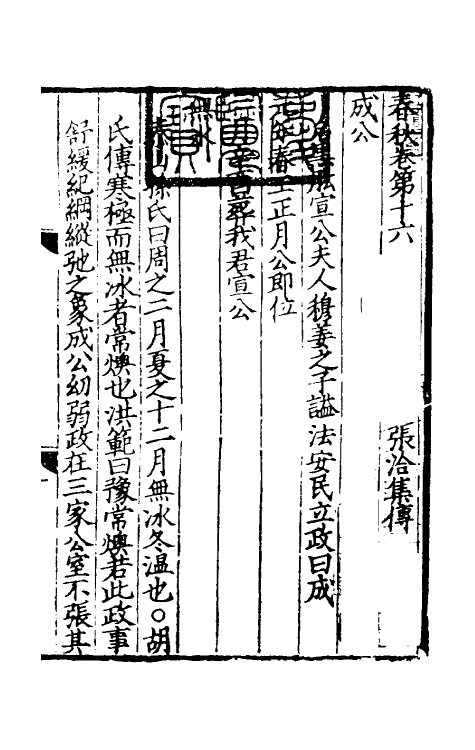 春秋卷第十六
張洽集傳
成公
宣公夫人穆姜之子謚法安民立政曰成
春王正月公即位
葬我君宣公
無冰
孫氏曰周之二月夏之十二月無冰冬温也○胡
氏傳寒極而無冰者常燠也洪範曰豫常燠若此政事
舒緩紀綱縱弛之象成公幼弱政在三家公室不張其